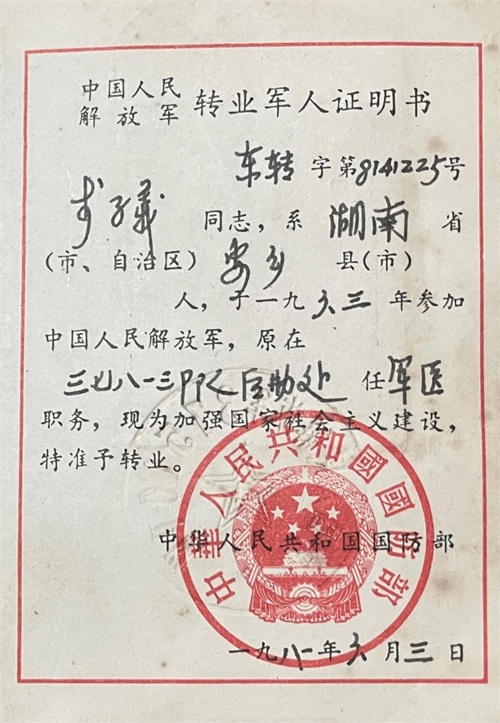 中国人民
解放军 转业军人证明书
东转字第8141225号
李子義同志，系湖南省
（市、自治区）安乡县（市）
人，于一九六三年参加
中国人民解放军，原在
三七八一三部队后勤处任军医
职务，现为加强国家社会主义建设，
特准予转业。
中华人民共和国国防部
中華人民共和國國防部
一九八一年六月三日